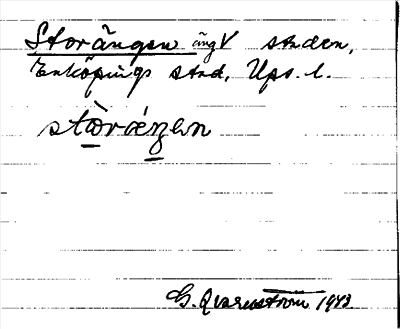 Storängen äng V staden,
Enköpings stad, Ups. l.
stòrǽŋen
G. Qvarnström 1943